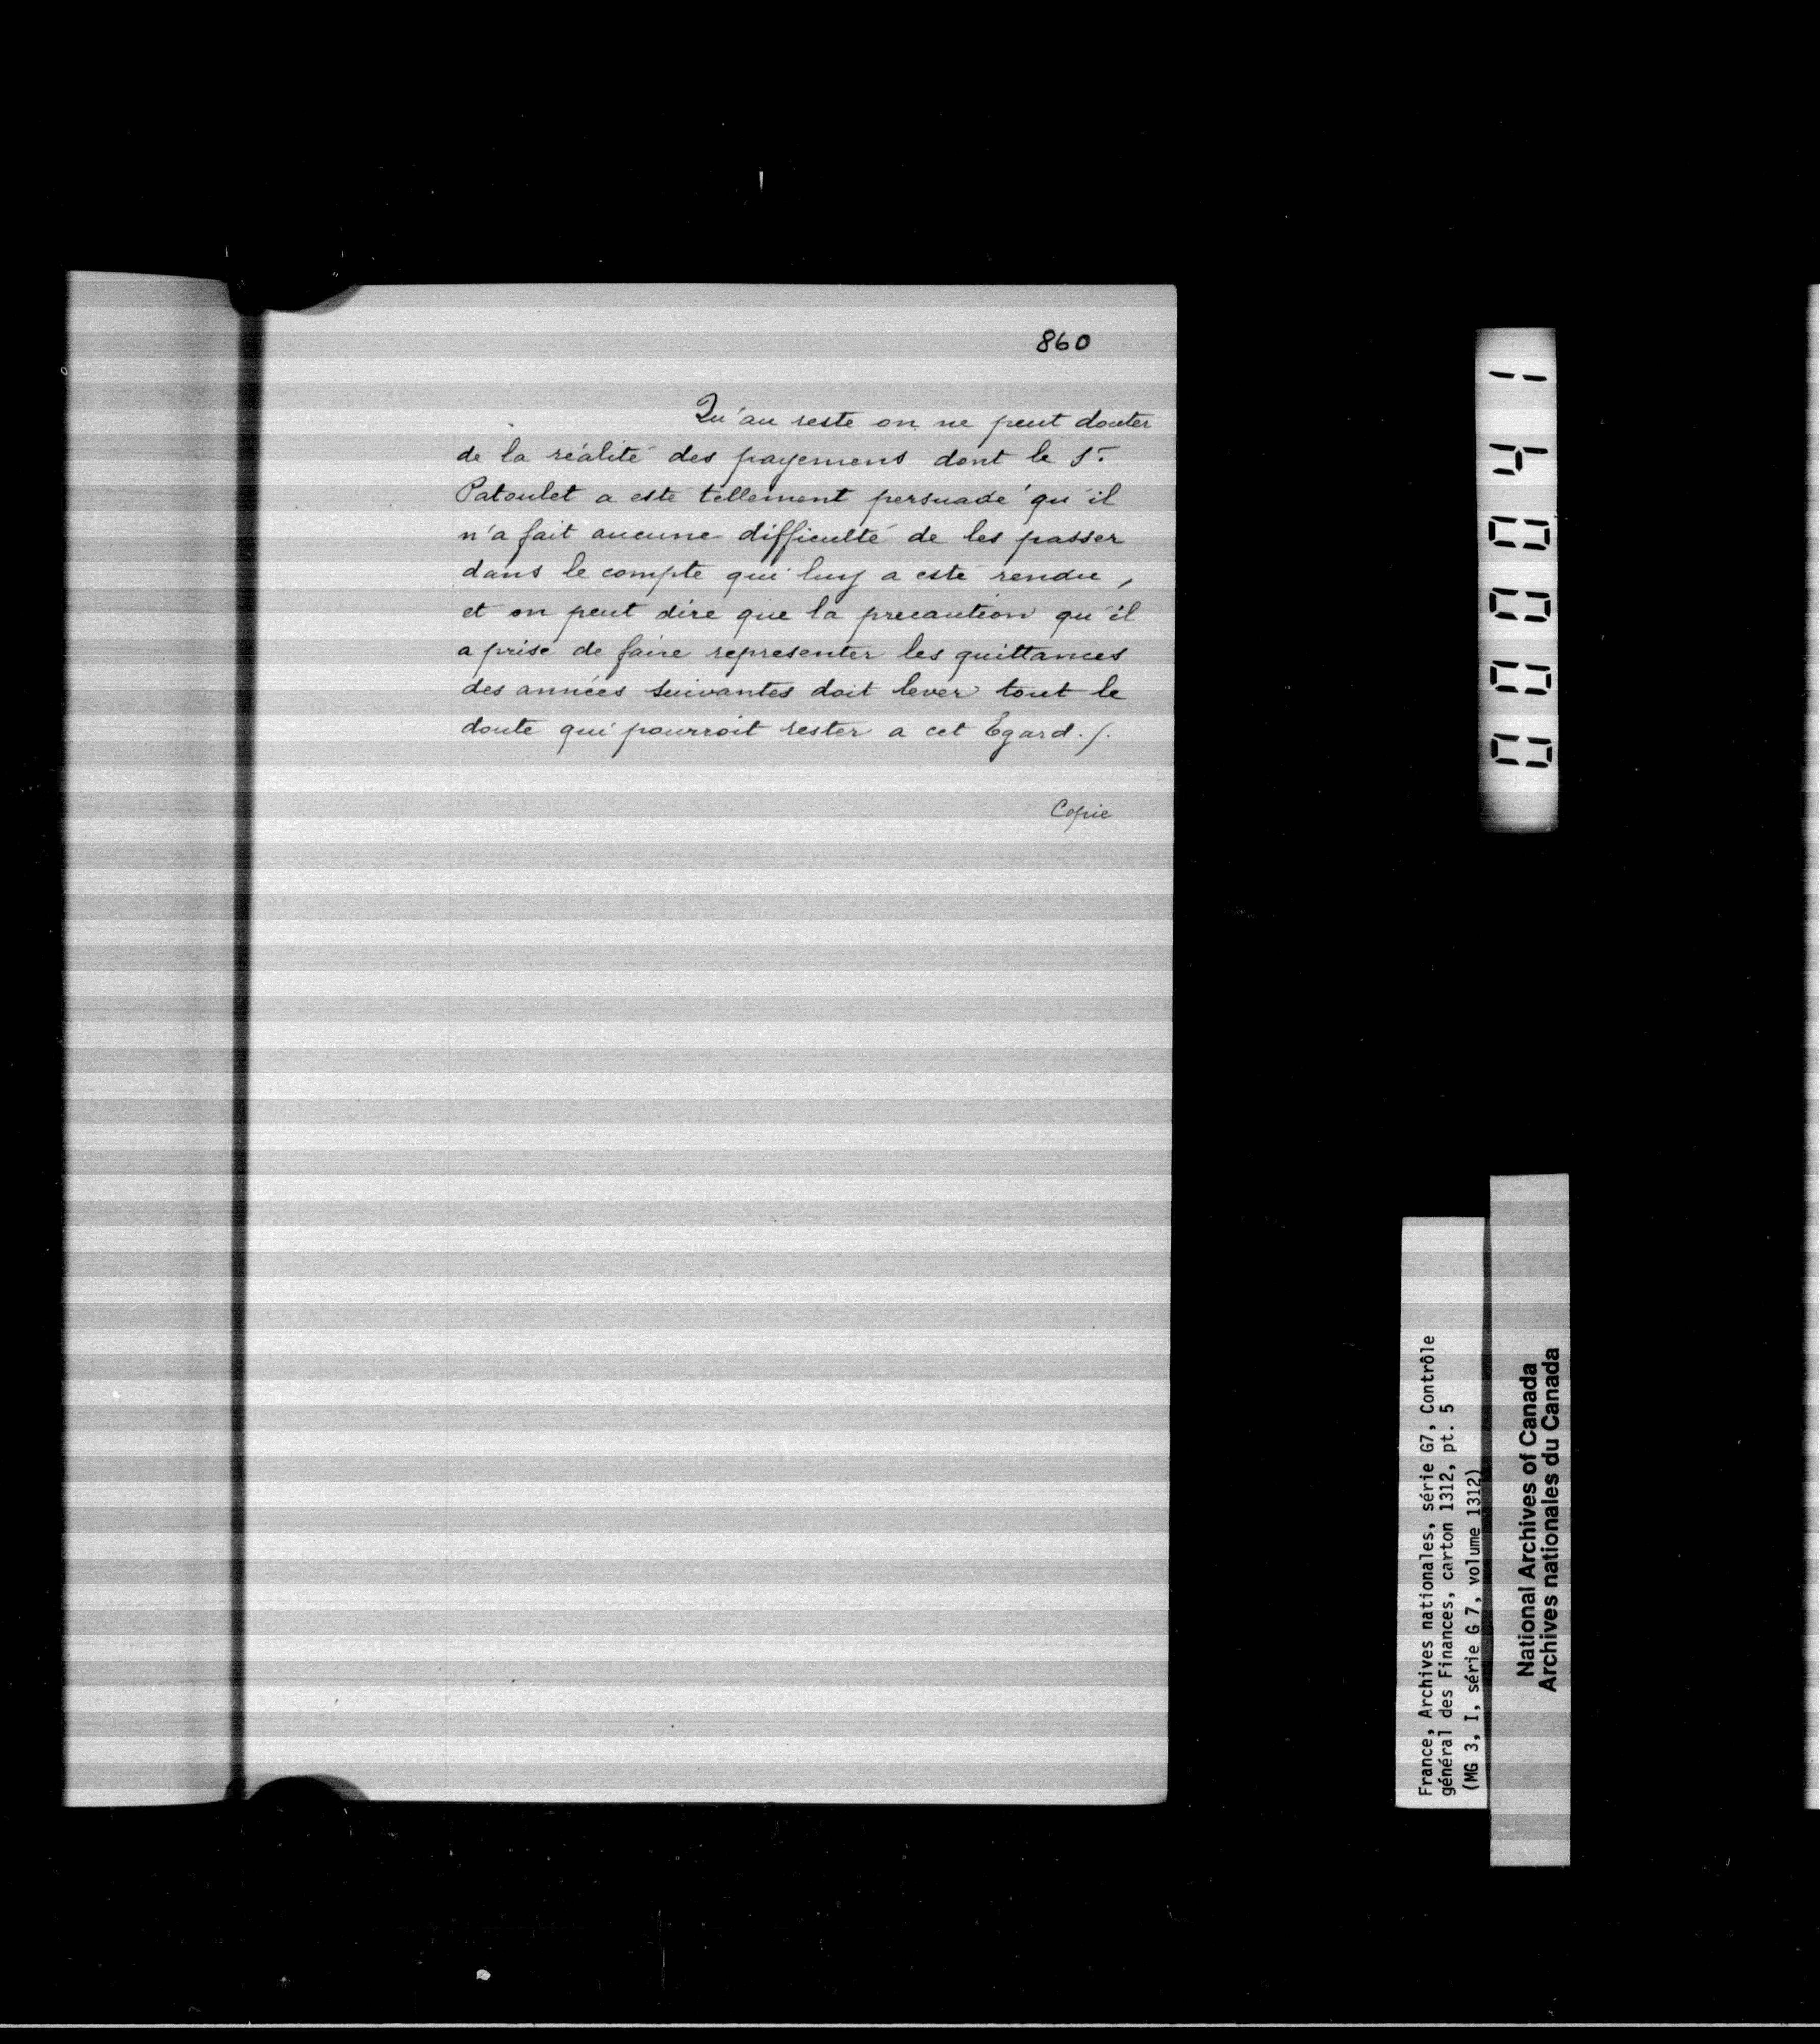 860
Qu'au reste on ne peut douter
de la réalité des payemens dont le Sr.
Patoulet a esté tellement persuadé qu'il
n'a fait aucune difficulté de les passer
dans le compte qui luy a esté rendu,
et on peut dire que la precaution qu'il
a prise de faire representer les quittances
des années suivantes doit lever tout le
doute qui pourroit rester a cet Egard./.
Copie
000041
France, Archives nationales, série G7, Contrôle
général des Finances, carton 1312, pt. 5
(MG 3, I, série G 7, volume 1312)
National Archives of Canada
Archives nationales du Canada